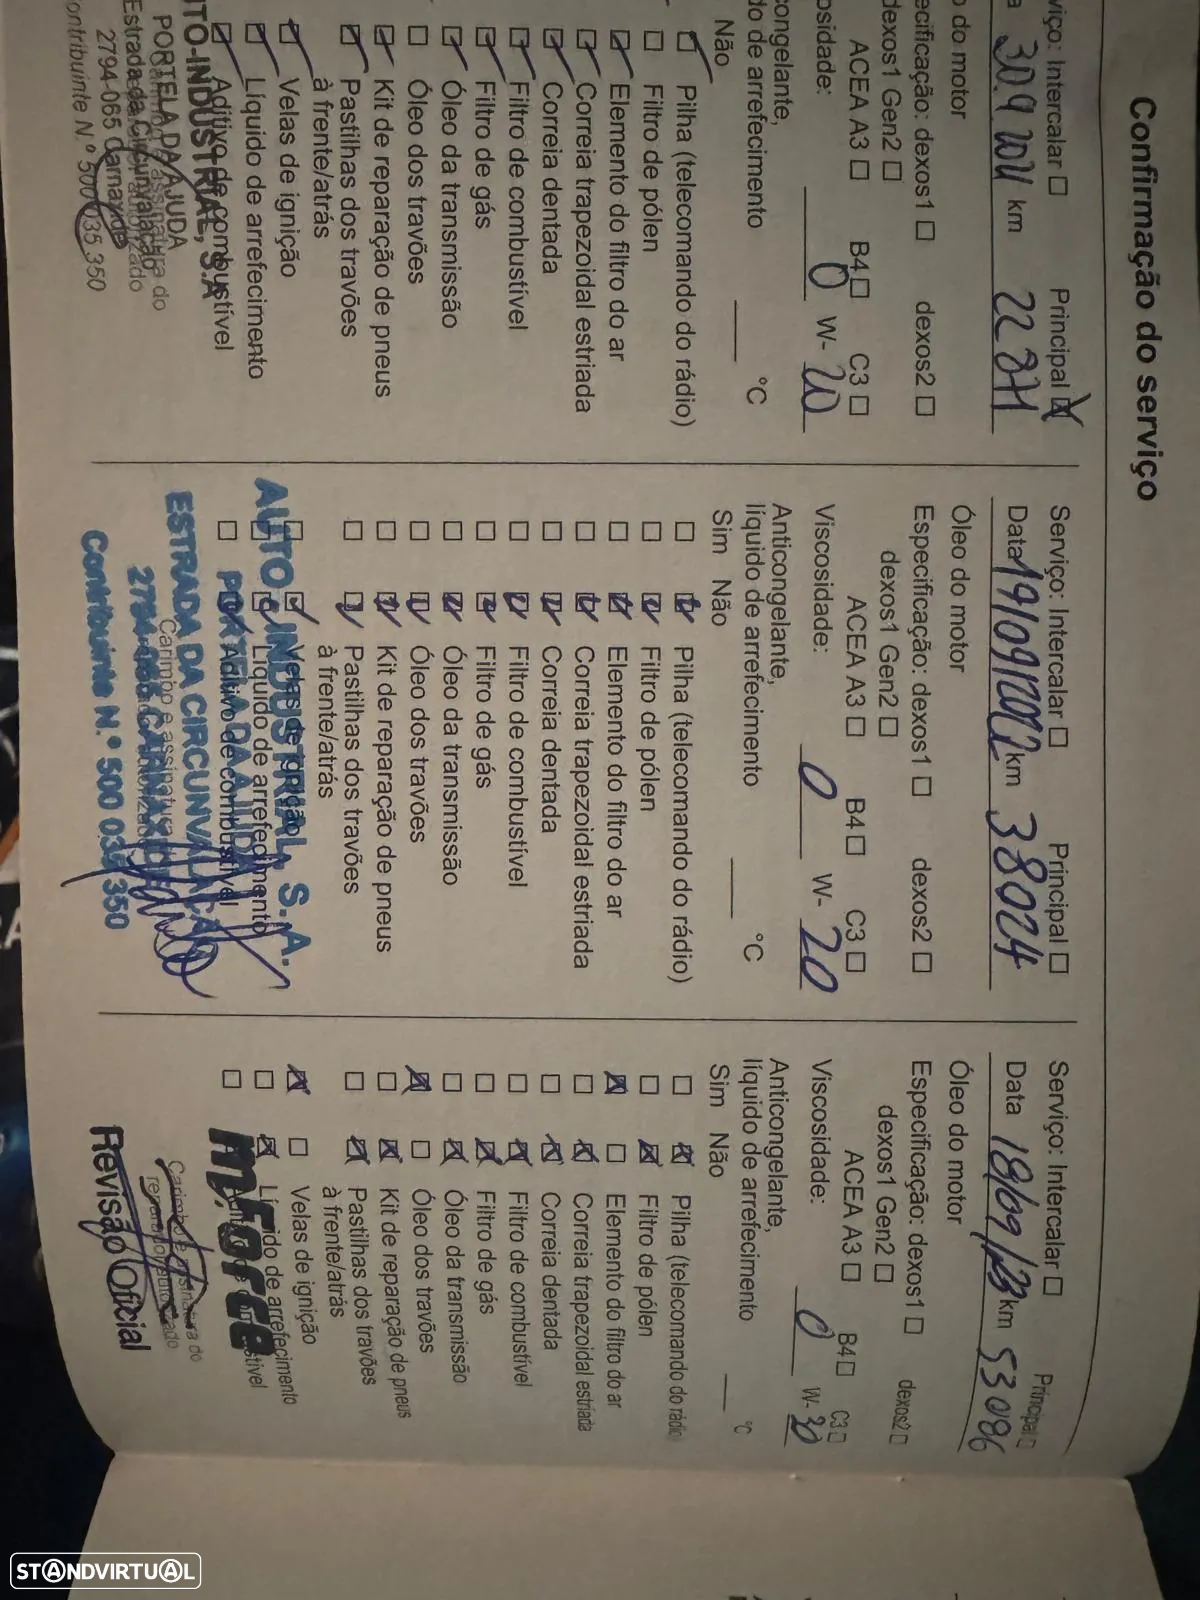 Confirmação do serviço
viço: Intercalar Principal
30.9.2021 km 22 871
do motor
ecificação: dexos1 dexos2
dexos1 Gen2
ACEA A3 B4 C3
osidade: 0 W- 20
congelante,
do de arrefecimento °C
Não
Pilha (telecomando do rádio)
Filtro de pólen
Elemento do filtro do ar
Correia trapezoidal estriada
Correia dentada
Filtro de combustível
Filtro de gás
Óleo da transmissão
Óleo dos travões
Kit de reparação de pneus
Pastilhas dos travões
à frente/atrás
Velas de ignição
Líquido de arrefecimento
Aditivo de combustível
TO-INDUSTRIAL, S.A
PORTELA DA AJUDA
Estrada da Circunvalação
2794-065 Carnaxide
ontribuinte N.º 500 035 350
Serviço: Intercalar Principal
Data 19/09/2022 km 38024
Óleo do motor
Especificação: dexos1 dexos2
dexos1 Gen2
ACEA A3 B4 C3
Viscosidade: 0 W- 20
Anticongelante,
líquido de arrefecimento °C
Sim Não
Pilha (telecomando do rádio)
Filtro de pólen
Elemento do filtro do ar
Correia trapezoidal estriada
Correia dentada
Filtro de combustível
Filtro de gás
Óleo da transmissão
Óleo dos travões
Kit de reparação de pneus
Pastilhas dos travões
à frente/atrás
Velas de ignição
Líquido de arrefecimento
Aditivo de combustível
AUTO-INDUSTRIAL, S.A.
PORTELA DA AJUDA
ESTRADA DA CIRCUNVALAÇÃO
Carimbo e assinatura
Contribuinte N.º 500 035 350
Serviço: Intercalar Principal
Data 18/09/23 km 53086
Óleo do motor
Especificação: dexos1 dexos2
dexos1 Gen2
ACEA A3 B4 C3
Viscosidade: 0 W- 30
Anticongelante,
líquido de arrefecimento °C
Sim Não
Pilha (telecomando do rádio)
Filtro de pólen
Elemento do filtro do ar
Correia trapezoidal estriada
Correia dentada
Filtro de combustível
Filtro de gás
Óleo da transmissão
Óleo dos travões
Kit de reparação de pneus
Pastilhas dos travões
à frente/atrás
Velas de ignição
Líquido de arrefecimento
m.Force
Revisão Oficial
STANDVIRTUAL